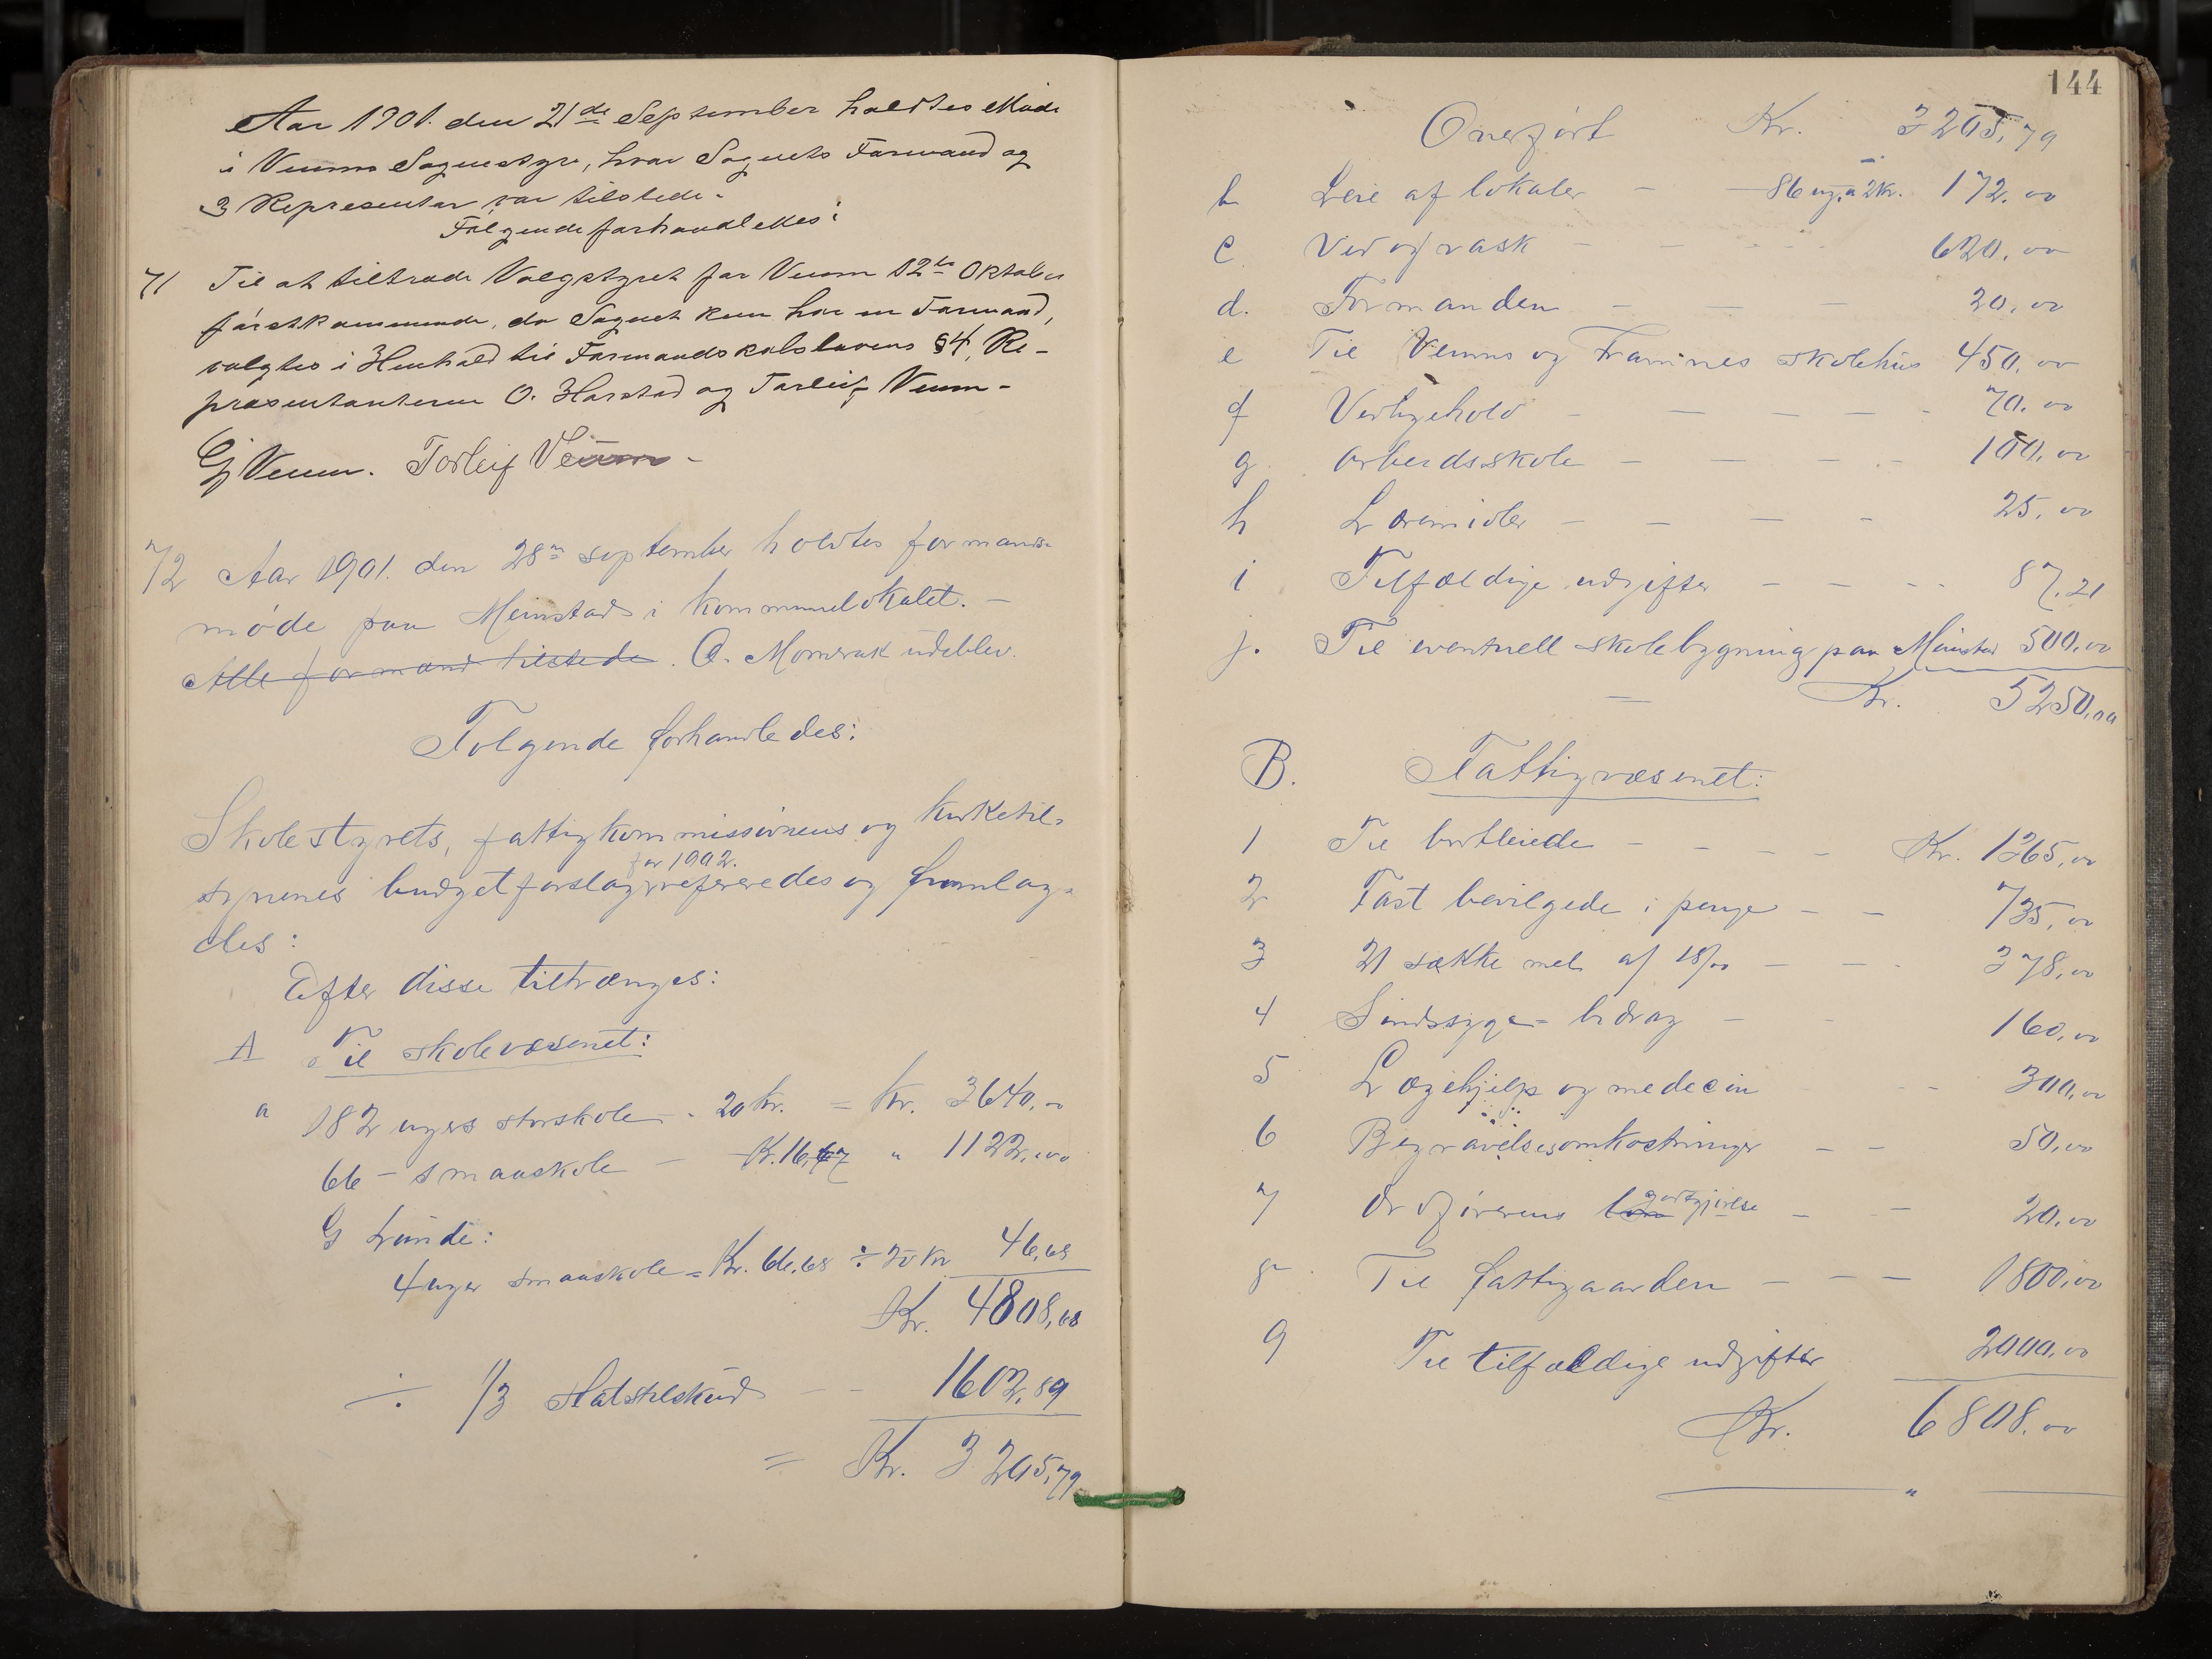 Aar 1901. den 21de September holdtes Møde
i Venns Sognestyre, hvor Sognets Formand og
3 Representar var tilstede.
Følgende forhandledes:
71 Til at tiltræde Valgstyret for Venn 12te Oktober
førstkommende, da Sognet kun har en Formand,
valgtes i Henhold til Formandskabslovens §4, Re-
præsentanterne O. Harstad og Torleif Venn-
Torleif Venn-
72 Aar 1901. den 28n september holdtes formands-
møde paa Meinstad i kommunelokalet.-
Alle formænd tilstede. O. Momrak udeblev.
Følgende forhandledes:
Skolestyrets, fattigkommissionens og kirketil-
synenes budgetforslag for 1902. refereredes og fremlag-
des:
Efter disse tiltrænges:
A Til skolevæsenet:
a 182 ugers storskole - 20 kr. = Kr. 3640,00
66 - smaaskole - Kr. 16,67 " 1122,00
G Lunde:
4 uger smaaskole = Kr. 66,68 ÷ 20 kr 46,68
Kr. 4808,68
÷ 1/3 statstilskud - - 1602,89
= Kr. 3205,79
144
Overført Kr. 3205,79
b Leie af lokaler - 86 ug. a 2 kr. 172.00
c Ved og vask - - - 620.00
d. Formanden - - - 20.00
e Til Venns og Framnes skolehus 450.00
f Vedligehold - - - - 70.00
g Arbeidsskole - - - - 100.00
h Læremidler - - - - 25.00
i Tilfældige udgifter - - - - 87.21
j. Til eventuell skolebygning paa Meinstad 500,00
Kr. 5250,00
B. Fattigvæsenet:
1 Til bortleiede - - - - Kr. 1365,00
2 Fast bevilgede i penge - - 735,00
3 21 sække mel af 18/00 - - 378,00
4 Sindssyge-bidrag - - 160,00
5 Lægehjelp og medecin - - 300,00
6 Begravelsesomkostninger - - 50,00
7 Ordførerens godtgjørelse - - 20,00
8 Til fattiggaarden - - - 1800,00
9 Til tilfældige udgifter 2000,00
Kr. 6808.00